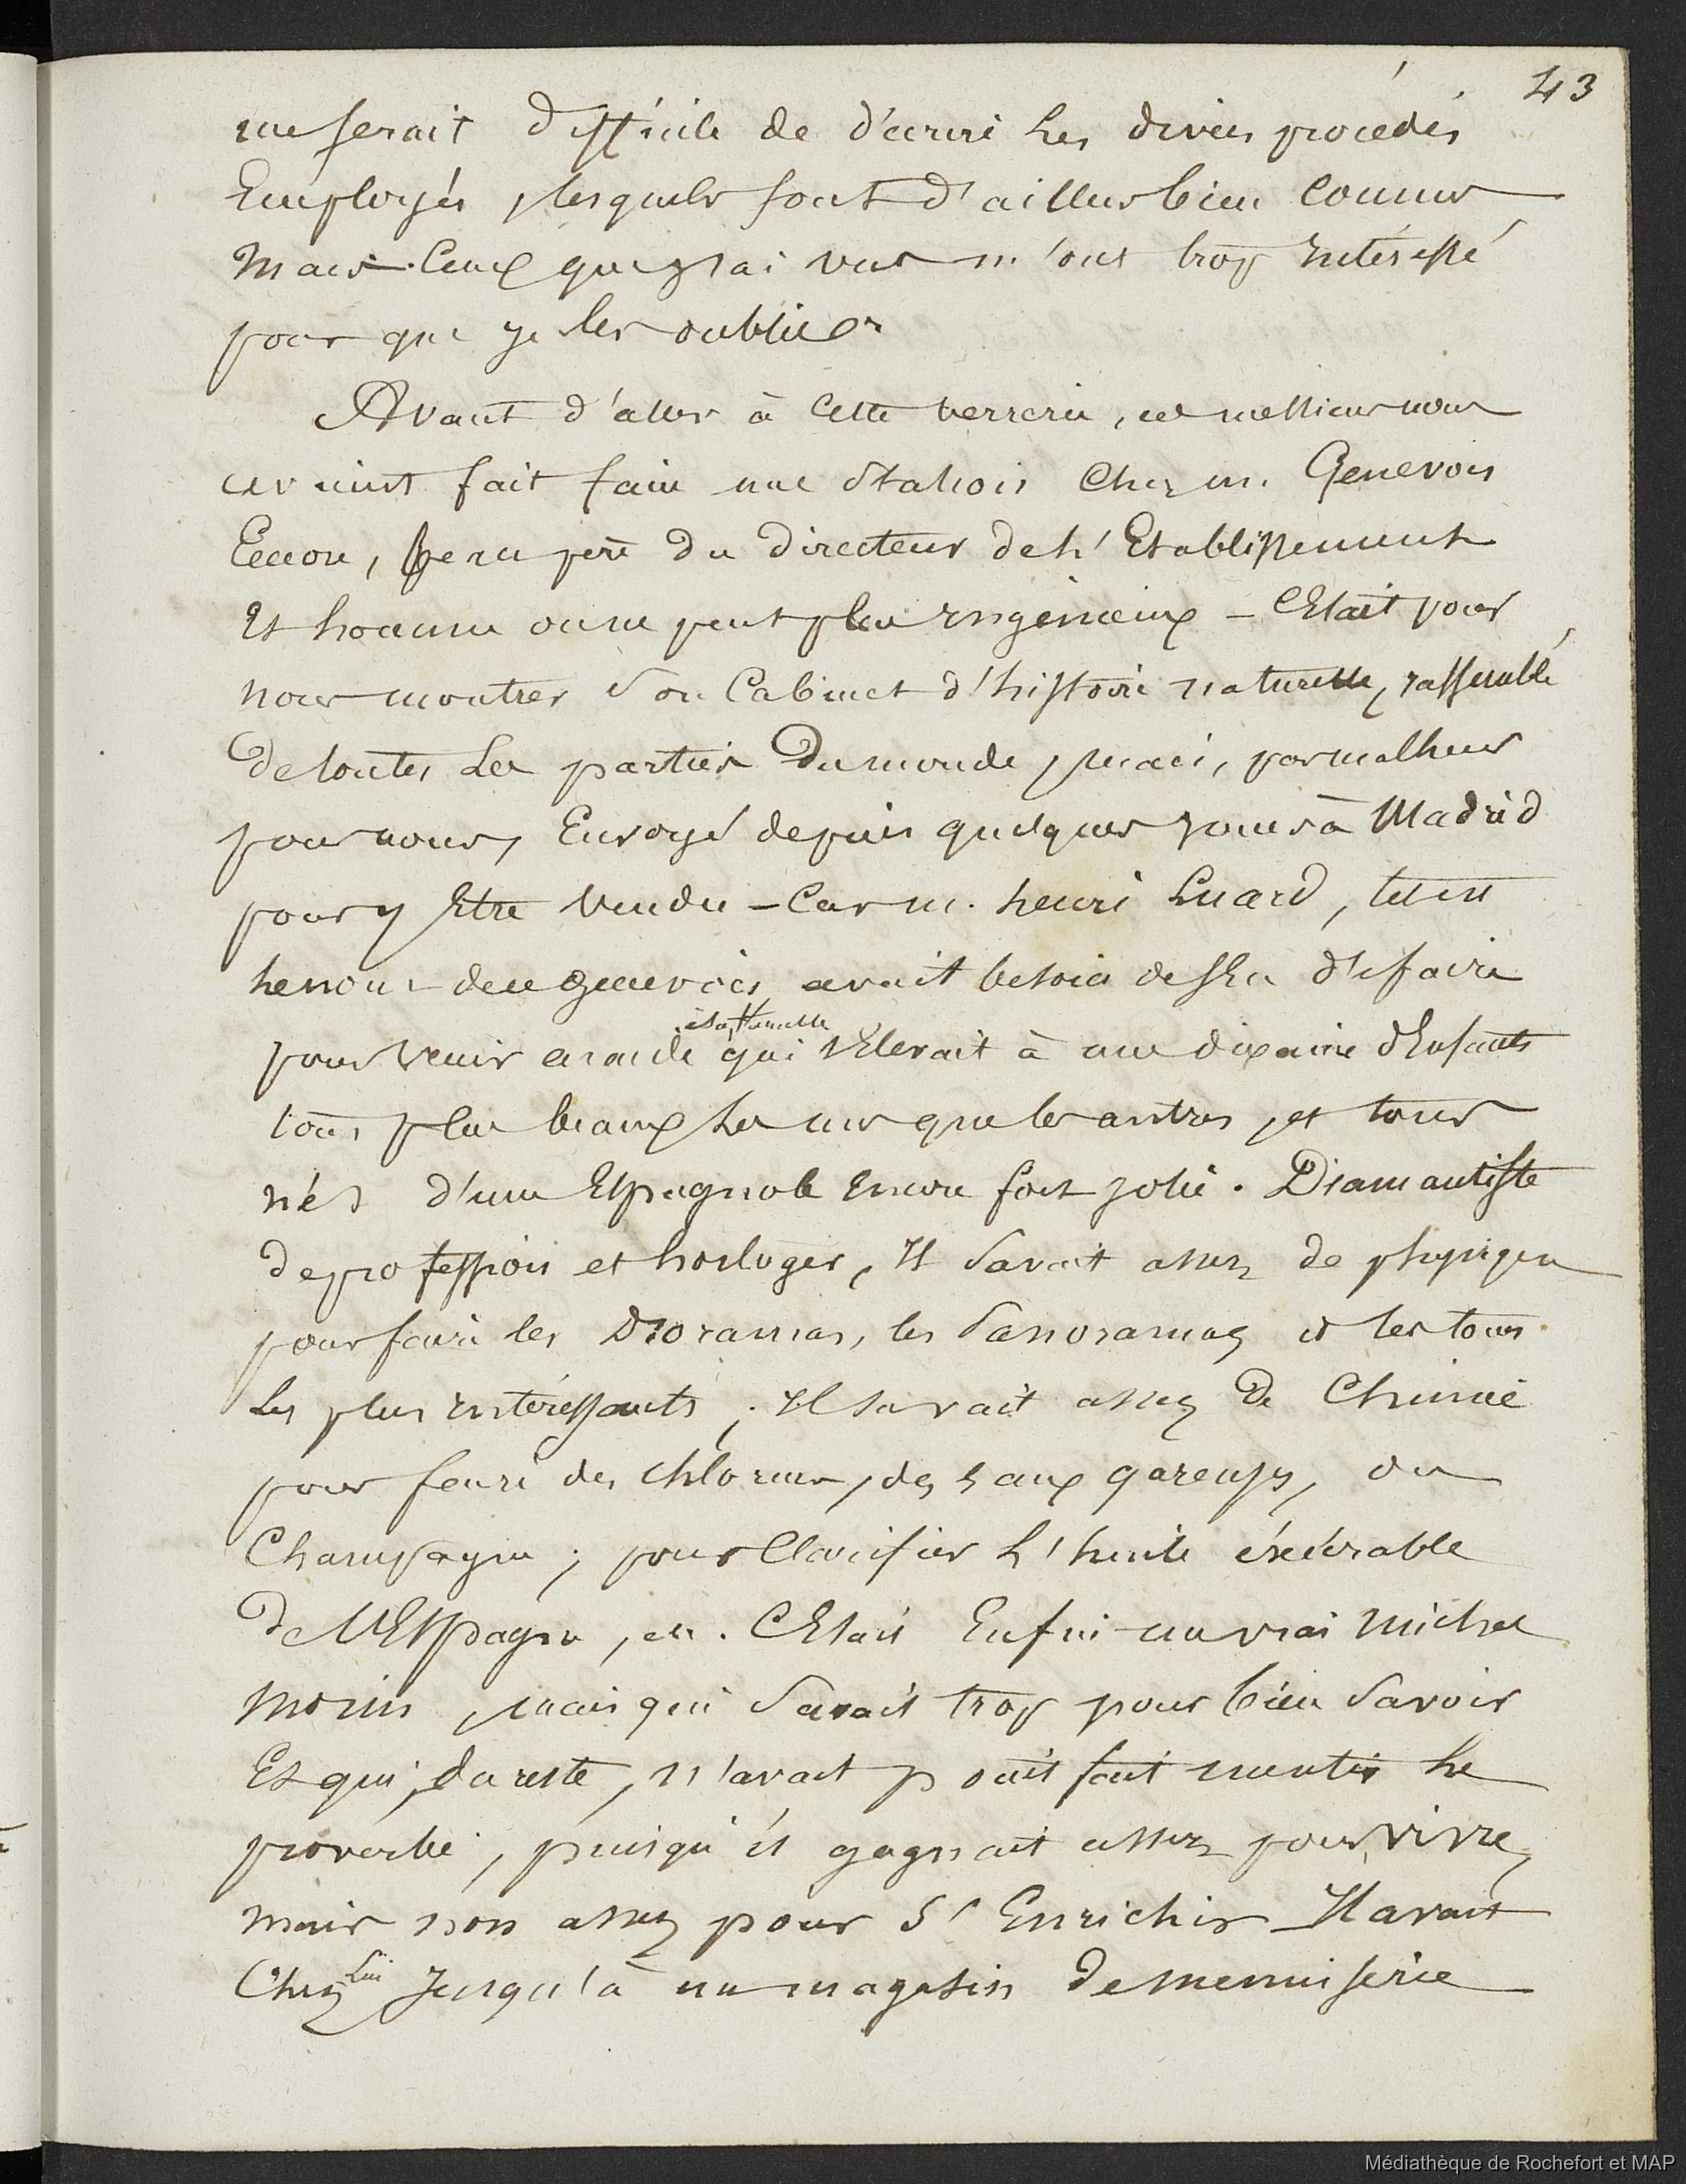 43
me serait difficile de décrire les divers procédés
Employés, lesquels sont d'ailleurs bien connus
mais ceux que j'ai vus m'ont trop intéressé
pour que je les oublie
Avant d'aller à cette verrerie, ces messieurs nous
avaient fait faire une station chez m. Genevois
beau père du directeur de l'Etablissement
Et homme on ne peut plus ingénieux - C'Etait pour
nous montrer son Cabinet d'histoire naturelle, rassemblé
de toutes les parties du monde, mais, par malheur
pour nous, Envoyé depuis quelques jours à Madrid
pour y Etre vendu - Car m. henri Luard, tel est
le nom du genevois, avait besoin de s'en défaire
pour venir en aide à sa famille qui s'Elevait à une dixaine d'Enfants
tous plus beaux les uns que les autres, et tous
nés d'une Espagnole encore fort jolie. Diamantiste
de profession et horloger, Il savait assez de physique
pour faire les Dioramas, les Panoramas et les tours
les plus intéressants ; Il savait assez de Chimie
pour faire des chlorures, des Eaux gazeuses, du
Champagne ; pour Clarifier l'huile éxécrable
de l'Espagne, etc. C'Etait Enfin un vrai michel
morin, mais qui savait trop pour bien savoir
Et qui, du reste, n'avait point fait mentir le
proverbe, puisqu'il gagnait assez pour vivre,
mais non assez pour s'Enrichir - Il avait
Chez Lui jusqu'à un magasin de menuiserie
Médiathèque de Rochefort et MAP